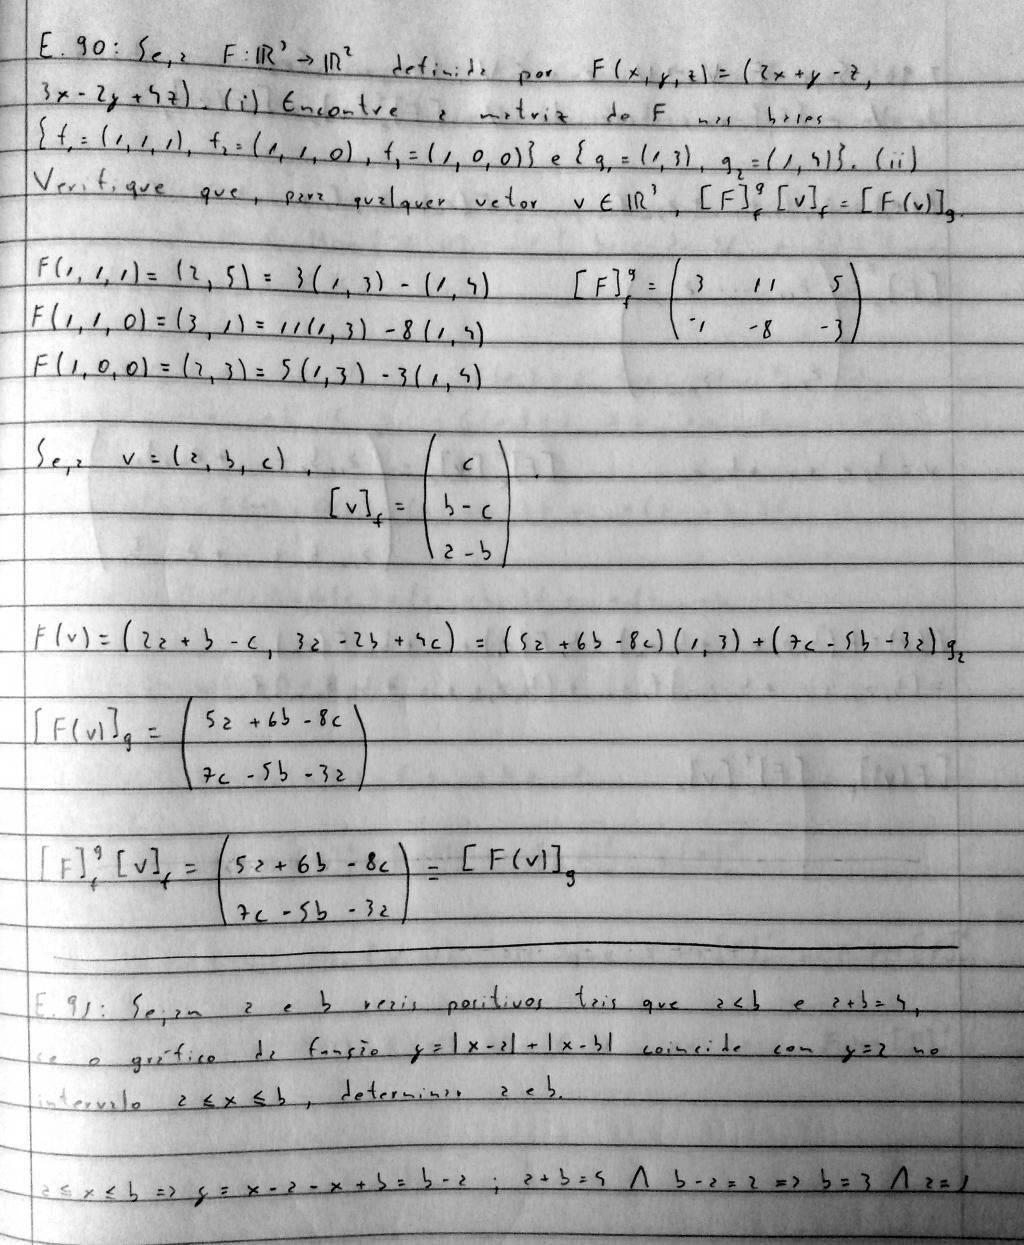 E. 90: Seja F: ℝ³ → ℝ² definida por F(x, y, z) = (2x + y - z,
3x - 2y + 4z). (i) Encontre a matriz de F nas bases
{f₁ = (1, 1, 1), f₂ = (1, 1, 0), f₃ = (1, 0, 0)} e {g₁ = (1, 3), g₂ = (1, 4)}. (ii)
Verifique que, para qualquer vetor v ∈ ℝ³, [F]_f^g [v]_f = [F(v)]_g.
F(1, 1, 1) = (2, 5) = 3(1, 3) - (1, 4) [F]_f^g = ( 3 11 5
F(1, 1, 0) = (3, 1) = 11(1, 3) - 8(1, 4) -1 -8 -3 )
F(1, 0, 0) = (2, 3) = 5(1, 3) - 3(1, 4)
Seja v = (a, b, c). ( c
[v]_f = b - c
a - b )
F(v) = (2a + b - c, 3a - 2b + 4c) = (5a + 6b - 8c)(1, 3) + (7c - 5b - 3a) g₂
[F(v)]_g = ( 5a + 6b - 8c
7c - 5b - 3a )
[F]_f^g [v]_f = ( 5a + 6b - 8c ) = [F(v)]_g
7c - 5b - 3a
E. 91: Sejam a e b reais positivos tais que a < b e a + b = 4,
se o gráfico da função y = |x - a| + |x - b| coincide com y = 2 no
intervalo a ≤ x ≤ b, determinar a e b.
a ≤ x ≤ b => y = x - a - x + b = b - a ; a + b = 4 ∧ b - a = 2 => b = 3 ∧ a = 1